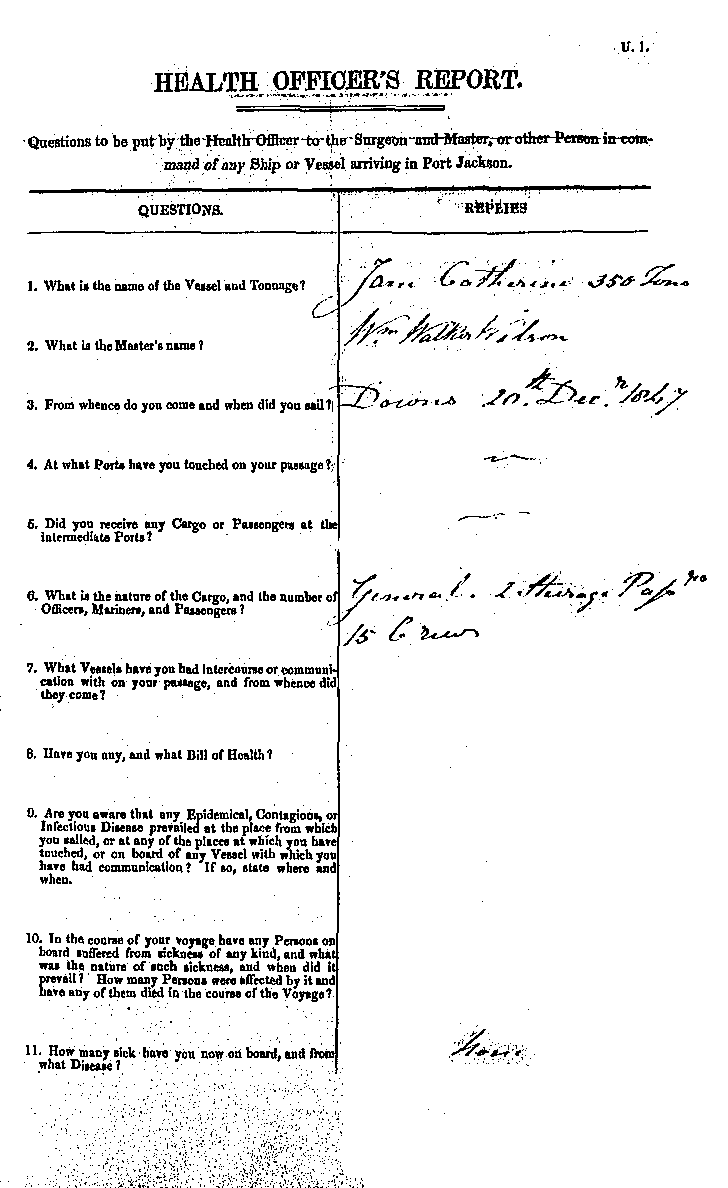 U. 1.
HEALTH OFFICER'S REPORT.
Questions to be put by the Health Officer to the Surgeon and Master, or other Person in com-
mand of any Ship or Vessel arriving in Port Jackson.
QUESTIONS.
REPLIES
1. What is the name of the Vessel and Tonnage?
Jane Catherine 350 Tons
2. What is the Master's name?
Wm Walker Wilson
3. From whence do you come and when did you sail?
Downs 20th Decr 1847
4. At what Ports have you touched on your passage?
—
5. Did you receive any Cargo or Passengers at the
intermediate Ports?
—
6. What is the nature of the Cargo, and the number of
Officers, Mariners, and Passengers?
General. 2 Steerage Passrs
15 Crew
7. What Vessels have you had intercourse or communi-
cation with on your passage, and from whence did
they come?
8. Have you any, and what Bill of Health?
9. Are you aware that any Epidemical, Contagious, or
Infectious Disease prevailed at the place from which
you sailed, or at any of the places at which you have
touched, or on board of any Vessel with which you
have had communication? If so, state where and
when.
10. In the course of your voyage have any Persons on
board suffered from sickness of any kind, and what
was the nature of such sickness, and when did it
prevail? How many Persons were affected by it and
have any of them died in the course of the Voyage?
11. How many sick have you now on board, and from
what Disease?
None